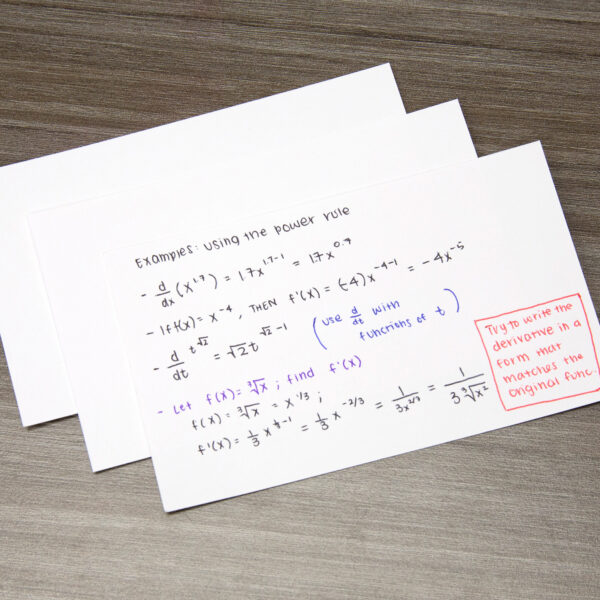 Examples: using the power rule
- d/dx (x^1.7) = 1.7x^1.7-1 = 1.7x^0.7
- If f(x) = x^-4, THEN f'(x) = (-4)x^-4-1 = -4x^-5
- d/dt t^√2 = √2t^√2-1
(use d/dt with
functions of t)
- Let f(x) = ³√x ; find f'(x)
f(x) = ³√x = x^1/3 ;
f'(x) = 1/3 x^1/3-1 = 1/3 x^-2/3 = 1/3x^2/3 = 1/3 ³√x²
Try to write the
derivative in a
form that
matches the
original func.